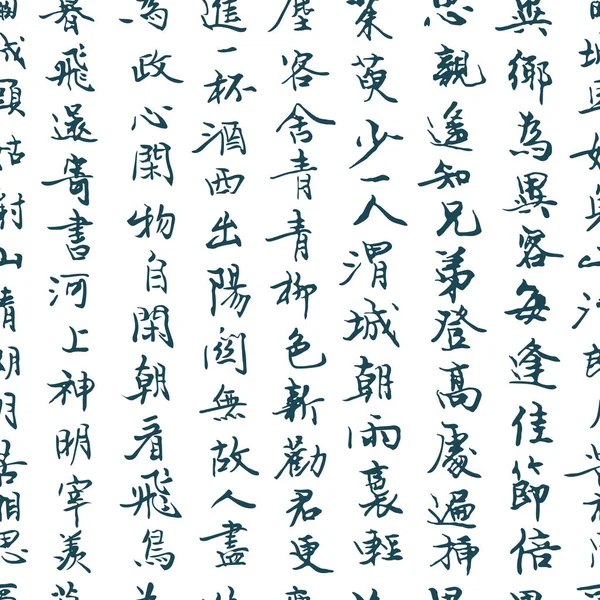 異鄉為異客每逢佳節倍
思親遙知兄弟登高處遍插
茱萸少一人渭城朝雨裛輕
塵客舍青青柳色新勸君更
進一杯酒西出陽關無故人盡
為政心閑物自閑朝看飛鳥
暮飛還寄書河上神明宰羨
城頭姑射山清明月苦相思